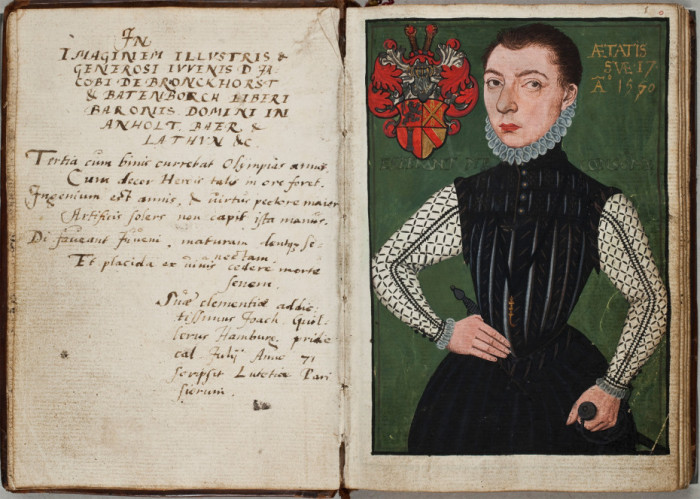 IN
IMAGINEM ILLUSTRIS &
GENEROSI IUVENIS D JA
COBI DE BRONCKHORST
& BATENBORCH LIBERI
BARONIS DOMINI IN
ANHOLT, BAER, &
LATHUN &c.
Tertia cum binis curretat Olympias annis
Cum decor Herois talis in ore foret.
Ingenium est annis, & virtus pectore maior
Artificis solers non capit ista manus.
Di faveant Iuveni, maturam denq, se-
nectam
Et placida ex vivis cedere morte
senem.
Suae clementiae addic-
tissimus Joach. Quil-
lerus Hamburg. pridie
cal Julij Anno 71
scripsit Lutetiae Pari
siorum.
ÆTATIS
SVÆ 17
A 1570